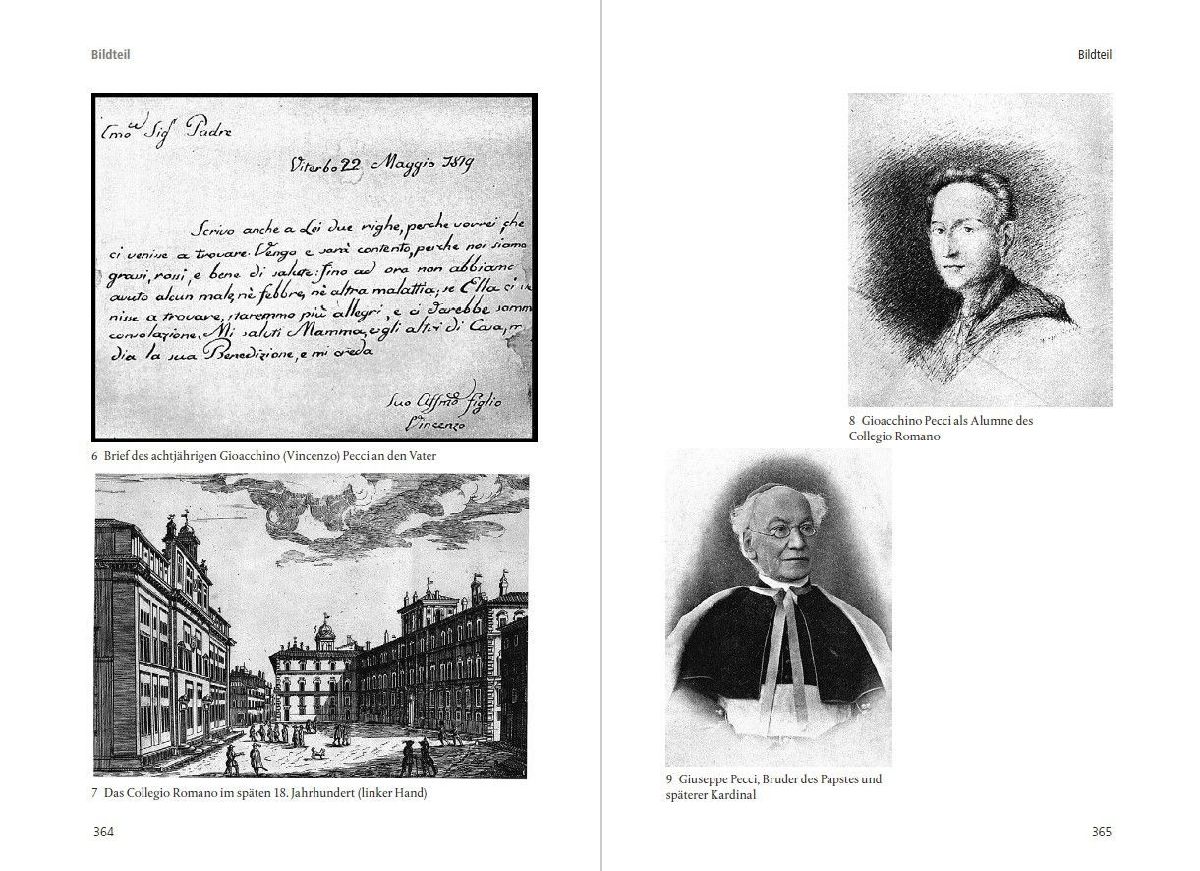 Bildteil
Emo Sigr Padre
Viterbo 22 Maggio 1819
Scrivo anche a Lei due righe, perche vorrei che
ci venisse a trovare. Venga e sarà contento, perche noi siamo
grassi, rossi, e bene di salute: fino ad ora non abbiamo
avuto alcun male, nè febbre, nè altra malattia; se Ella ci ve
nisse a trovare, staremmo più allegri, e ci darebbe somm
consolazione. Mi saluti Mamma, e gli altri di Casa, m
dia la sua Benedizione, e mi creda
Suo Affmo figlio
Vincenzo
6 Brief des achtjährigen Gioacchino (Vincenzo) Pecci an den Vater
7 Das Collegio Romano im späten 18. Jahrhundert (linker Hand)
364
Bildteil
8 Gioacchino Pecci als Alumne des
Collegio Romano
9 Giuseppe Pecci, Bruder des Papstes und
späterer Kardinal
365